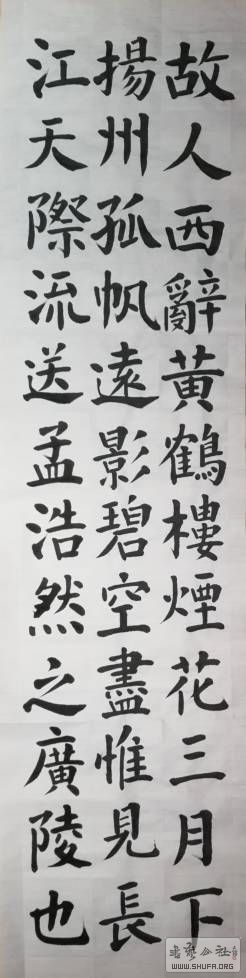 故人西辭黃鶴樓煙花三月下
揚州孤帆遠影碧空盡惟見長
江天際流送孟浩然之廣陵也
WWW.SHUFA.ORG